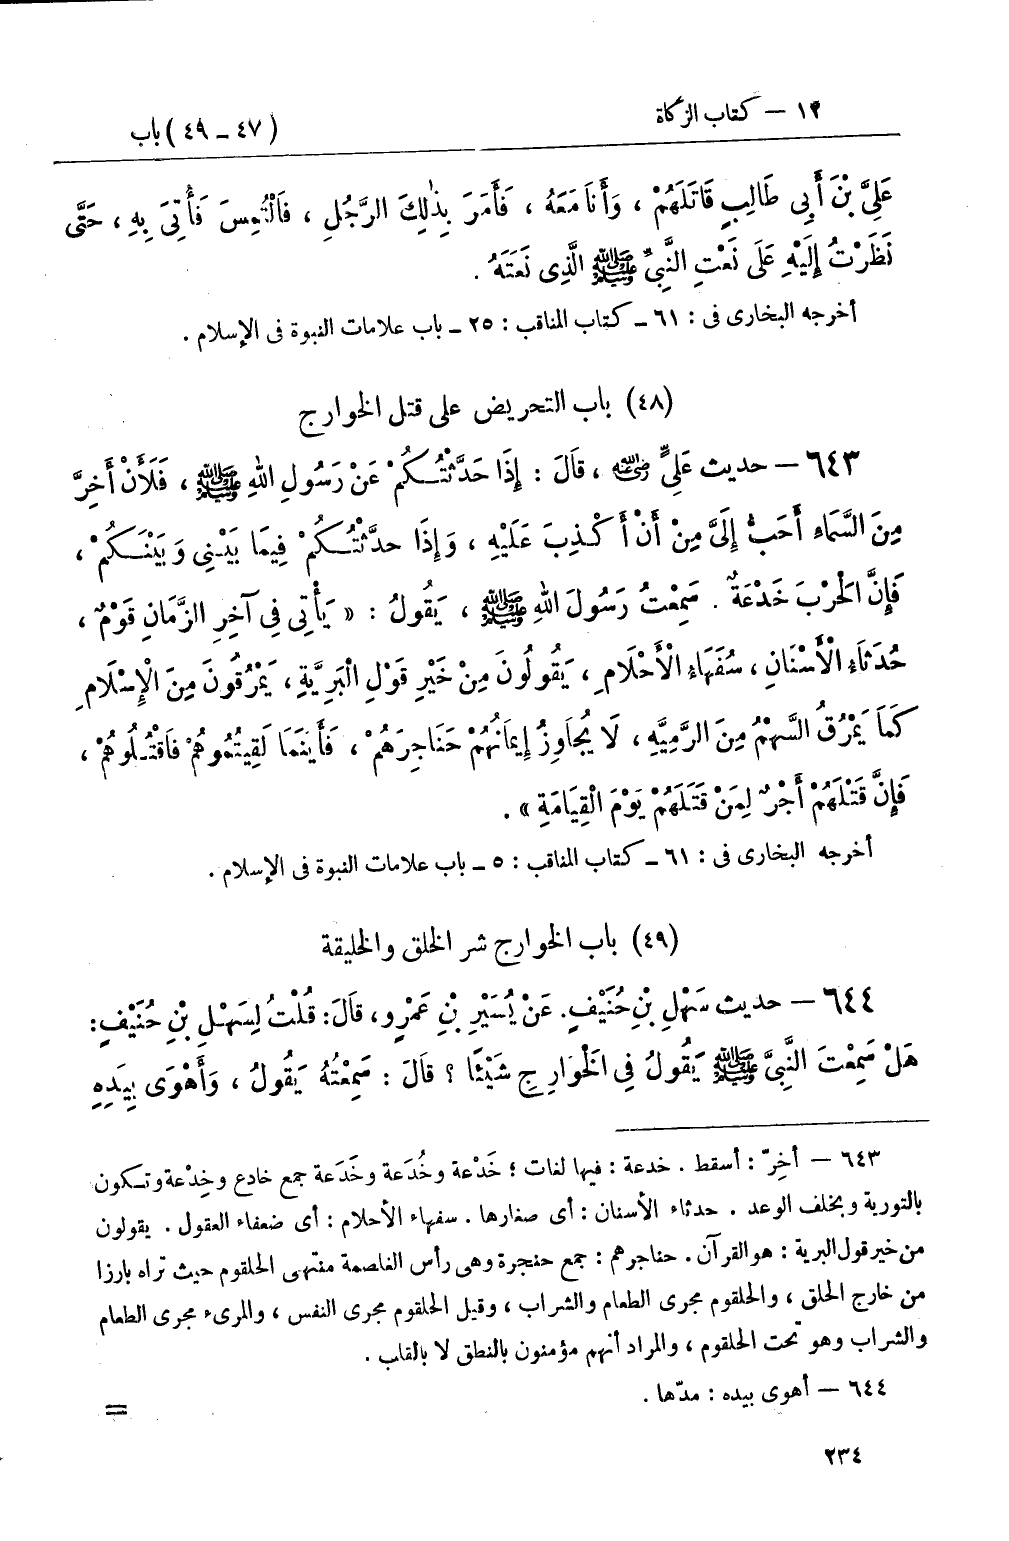 ١٢ – كتاب الزكاة
(٤٧ – ٤٩) باب
عَلِيَّ بْنَ أَبِى طَالِبٍ قَاتَلَهُمْ ، وَأَنَا مَعَهُ ، فَأَمَرَ بِذٰلِكَ الرَّجُلِ ، فَالْتُمِسَ فَأُتِىَ بِهِ ، حَتَّى
نَظَرْتُ إِلَيْهِ عَلَى نَعْتِ النَّبِىِّ ﷺ الَّذِى نَعَتَهُ .
أخرجه البخارى فى : ٦١ – كتاب المناقب : ٢٥ – باب علامات النبوة فى الإسلام .
(٤٨) باب التحريض على قتل الخوارج
٦٤٣ – حديث عَلِيٍّ رضي الله عنه ، قَالَ : إِذَا حَدَّثْتُكُمْ عَنْ رَسُولِ اللهِ ﷺ ، فَلَأَنْ أَخِرَّ
مِنَ السَّمَاءِ أَحَبُّ إِلَىَّ مِنْ أَنْ أَكْذِبَ عَلَيْهِ ، وَإِذَا حدَّثْتُكُمْ فِيمَا بَيْنِى وَبَيْنَكُمْ ،
فَإِنَّ الْحَرْبَ خَدْعَةٌ . سَمِعْتُ رَسُولَ اللهِ ﷺ ، يَقُولُ : « يَأْتِى فِى آخِرِ الزَّمَانِ قَوْمٌ ،
حُدَثَاءِ الْأَسْنَانِ ، سُفَهَاءِ الْأَحْلَامِ ، يَقُولُونَ مِنْ خَيْرِ قَوْلِ الْبَرِيَّةِ ، يَمْرُقُونَ مِنَ الْإِسْلَامِ
كَمَا يَمْرُقُ السَّهْمُ مِنَ الرَّمِيَّهِ ، لَا يُجَاوِزُ إِيمَانُهُمْ حَنَاجِرَهُمْ ، فَأَيْنَمَا لَقِيتُمُوهُمْ فَاقْتُلُوهُمْ ،
فَإِنَّ قَتْلَهُمْ أَجْرٌ لِمَنْ قَتَلَهُمْ يَوْمَ الْقِيَامَةِ » .
أخرجه البخارى فى : ٦١ – كتاب المناقب : ٥ – باب علامات النبوة فى الإسلام .
(٤٩) باب الخوارج شر الخلق والخليقة
٦٤٤ – حديث سَهْلِ بْنِ حُنَيْفٍ. عَنْ يُسَيْرِ بْنِ عَمْرٍو، قَالَ: قُلْتُ لِسَهْلِ بْنِ حُنَيْفٍ:
هَلْ سَمِعْتَ النَّبِىَّ ﷺ يَقُولُ فِى الْخَوَارِجِ شَيْئًا ؟ قَالَ : سَمِعْتُهُ يَقُولُ ، وَأَهْوَى بِيَدِهِ
٦٤٣ – أَخِرّ : أسقط . خدعة : فيها لغات ؛ خَدْعة وخُدَعة وخَدَعة جمع خادع وخِدْعة وتكون
بالتورية وبخلف الوعد . حدثاء الأسنان : أى صغارها . سفهاء الأحلام : أى ضعفاء العقول . يقولون
من خير قول البرية : هو القرآن . حناجرهم : جمع حنجرة وهى رأس الغلصمة منتهى الحلقوم حيث تراه بارزا
من خارج الحلق ، والحلقوم مجرى الطعام والشراب ، وقيل الحلقوم مجرى النفس ، والمرىء مجرى الطعام
والشراب وهو تحت الحلقوم ، والمراد أنهم مؤمنون بالنطق لا بالقلب .
٦٤٤ – أهوى بيده : مدّها .
=
٢٣٤